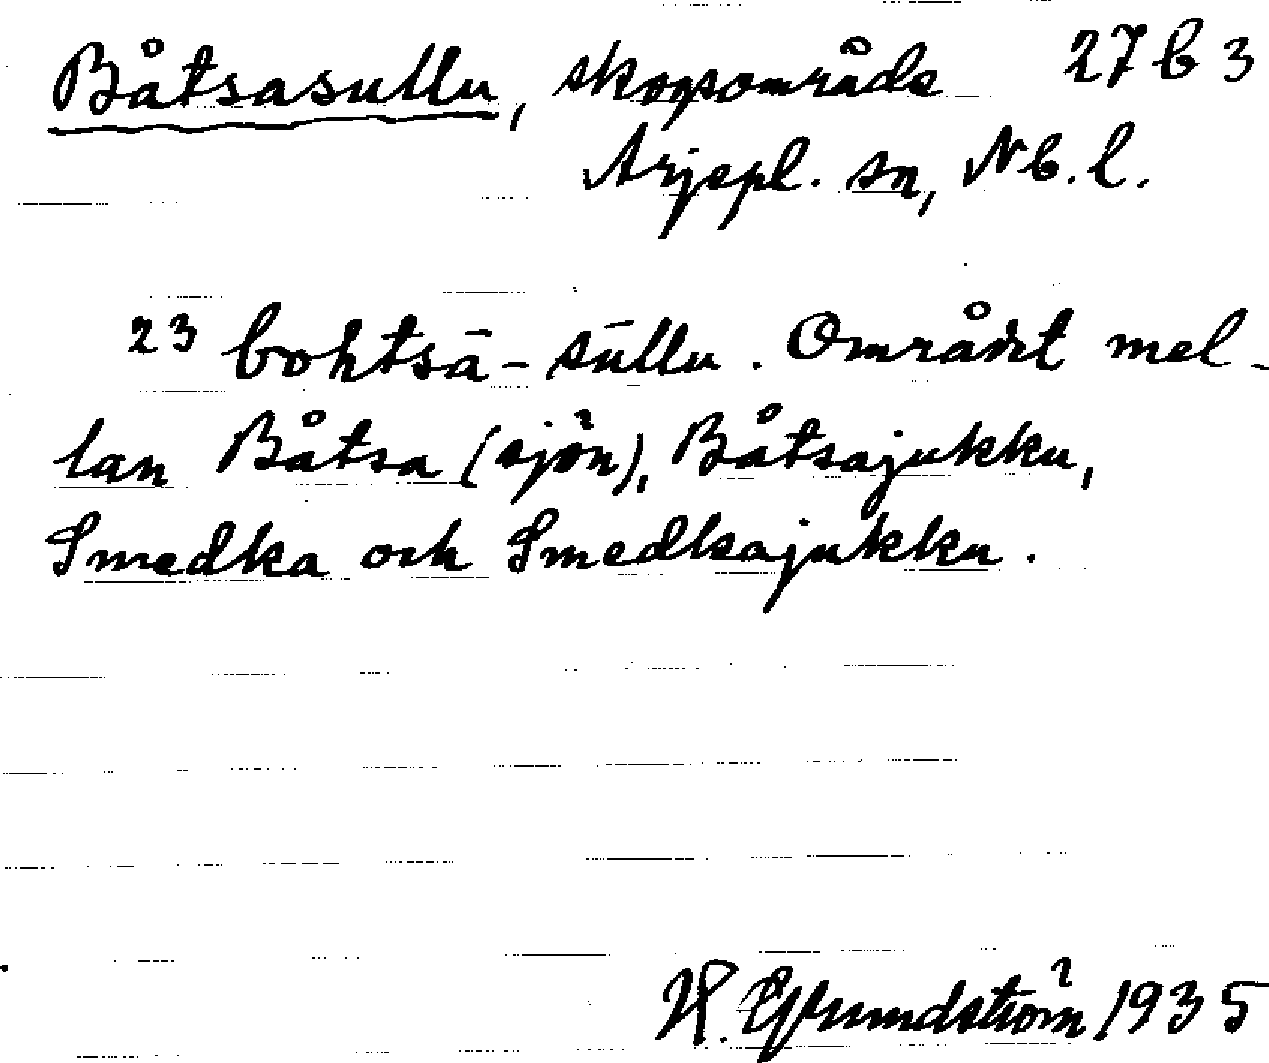 Båtsasullu, skogsområde 27 b 3
Arjepl. sn, Nb. l.
23 bohtsā-sūllu. Området mel-
lan Båtsa (sjön), Båtsajukku,
Smedka och Smedkajukku.
H. Grundström 1935